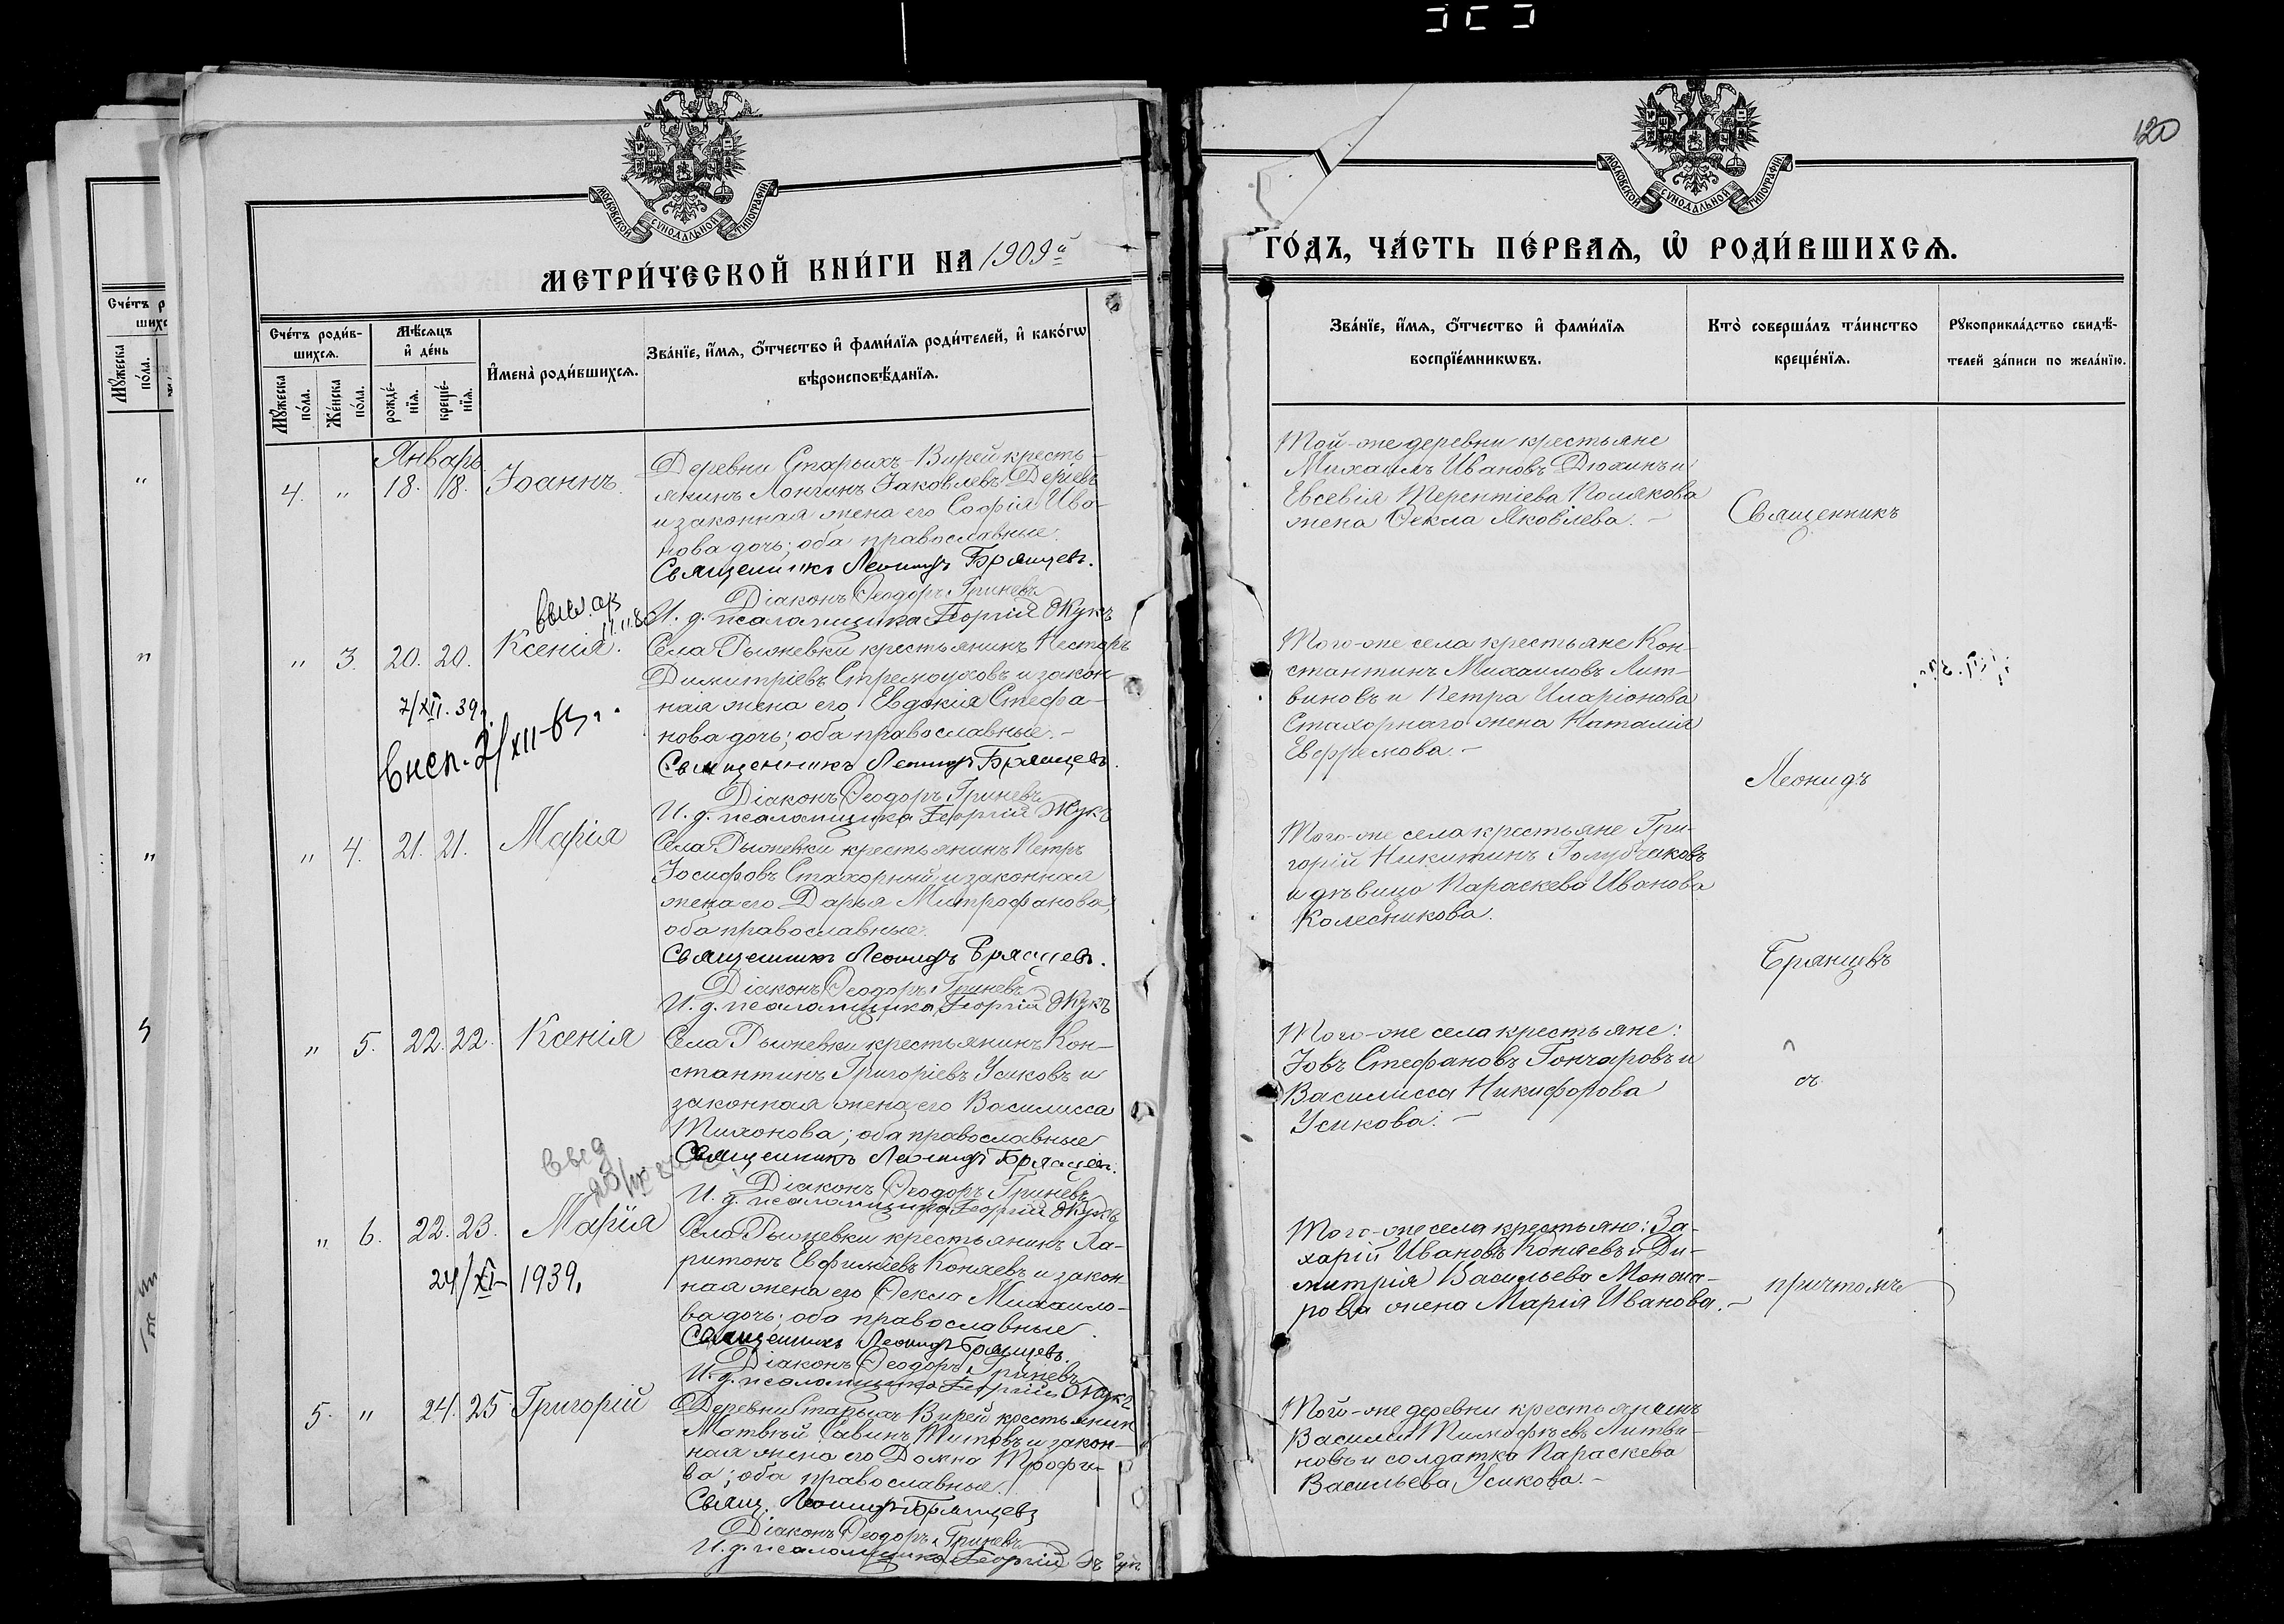 120
МОСКОВСКОЙ СѴНОДАЛЬНОЙ ТИПОГРАФІИ
МЕТРИ́ЧЕСКОЙ КНИ́ГИ НА 1909й
Сче́тъ роди́в-
шихсѧ.
Мѣ́сѧцъ
и҆ де́нь
И҆мена̀ роди́вшихсѧ.
Зва́нїе, и҆́мѧ, ѻ҆́тчество и҆ фами́лїѧ роди́телей, и҆ како́гѡ
вѣроисповѣ́данїѧ.
Мꙋ́жеска
по́ла.
Же́нска
по́ла.
рожде́-
нїѧ.
креще́-
нїѧ.
Январь
4. " 18. 18. Іоаннъ.
Деревни Старыхъ-Вирей кресть-
янинъ Лонгинъ Іаковлевъ
и законная жена его Софія Ива-
нова дочь; оба православные.
Священникъ Леонидъ Брянцевъ.
Діаконъ Ѳеодоръ Гриневъ
И. д. псаломщика Георгій Жукъ
" 3. 20. 20. Ксенія.
7/XII. 39г.
Села Рыжевки крестьянинъ Несторъ
Димитріевъ Стремоуховъ и закон-
ная жена его Евдокія Стефа-
нова дочь; оба православные.-
Священникъ Леонидъ Брянцевъ.
Діаконъ Ѳеодоръ Гриневъ
И. д. псаломщика Георгій Жукъ
" 4. 21. 21. Марія
Села Рыжевки крестьянинъ Петръ
Іосифовъ Стахорный и законная
жена его Дарья Митрофанова,
оба православные.
Священникъ Леонидъ Брянцевъ.
Діаконъ Ѳеодоръ Гриневъ
И. д. псаломщика Георгій Жукъ
" 5. 22. 22. Ксенія
Села Рыжевки крестьянинъ Кон-
стантинъ Григоріевъ Усиковъ и
законная жена его Василисса
Тихонова; оба православные
Священникъ Леонидъ Брянцевъ.
Діаконъ Ѳеодоръ Гриневъ
И. д. псаломщика Георгій Жукъ
" 6. 22. 23. Марія
24/XI- 1939.
Села Рыжевки крестьянинъ Ха-
ритонъ Евфиміевъ Коняевъ и закон
ная жена его Ѳекла Михаило-
ва дочь; оба православные.
Священникъ Леонидъ Брянцевъ.
Діаконъ Ѳеодоръ Гриневъ
И. д. псаломщика Георгій Жукъ
5. " 24. 25. Григорій
Деревни Старыхъ-Вирей крестьянин
Матвѣй Савинъ Титовъ и закон-
ная жена его Домна
ва; оба православные.
Свящ. Леонидъ Брянцевъ
Діаконъ Ѳеодоръ Гриневъ
И. д. псаломщика Георгій
МОСКОВСКОЙ СѴНОДАЛЬНОЙ ТИПОГРАФІИ
ГО́ДЪ, ЧА́СТЬ ПЕ́РВАѦ, Ѡ҆ РОДИ́ВШИХСѦ.
Зва́нїе, и҆́мѧ, ѻ҆́тчество и҆ фами́лїѧ
воспрїе́мникѡвъ.
Кто̀ соверша́лъ та́инство
креще́нїѧ.
Рꙋкоприкла́дство свидѣ́-
телей за́писи по жела́нїю.
Той-же деревни крестьяне
Михаилъ Ивановъ Дюхинъ и
Евсевія Терентіева Полякова
жена Ѳекла Яковлева.-
Священникъ
Того-же села крестьяне Кон-
стантинъ Михаиловъ Лит-
виновъ и Петра Иларіонова
Стахорнаго жена Наталія
Ефремова.-
Леонидъ
Того-же села крестьяне Гри-
горій Никитинъ Голубчиковъ
и дѣвица Параскева Иванова
Колесникова.
Брянцевъ
Того-же села крестьяне:
Іовъ Стефановъ Гончаровъ и
Василисса Никифорова
Усикова.-
съ
Того-же села крестьяне: За-
харій Ивановъ Коняевъ и Ди-
митрія Васильева
жена Марія Иванова.-
причтомъ
Той-же деревни крестьянинъ
Василій Тимофѣевъ Литви-
новъ и солдатка Параскева
Васильева Усикова.-